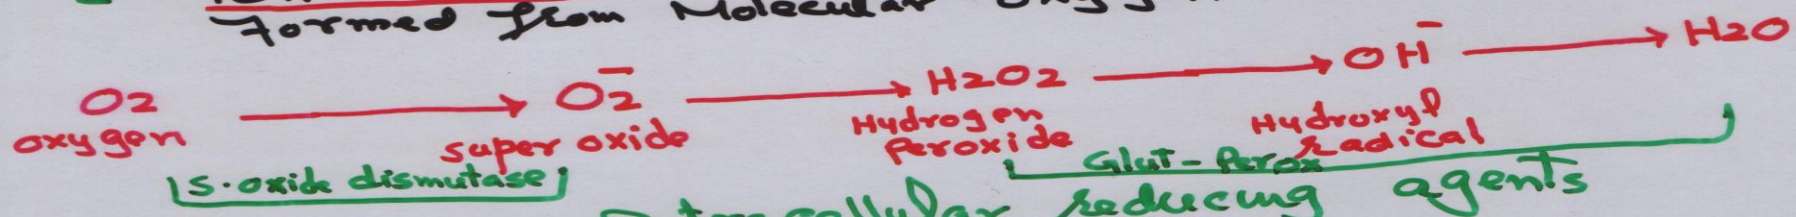 Formed from Molecular
O2 → O2̄ → H2O2 → OH̄ → H2O
oxygen super oxide Hydrogen Peroxide Hydroxyl Radical
S.oxide dismutase Glut-Perox
reducing agents